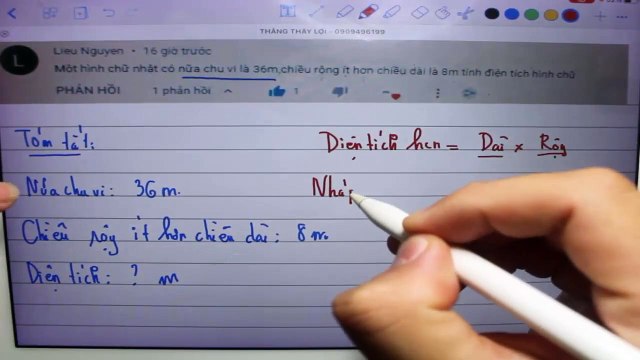 THẮNG THẦY LỢI - 0909496199
L
Lieu Nguyen • 16 giờ trước
Một hình chữ nhật có nửa chu vi là 36m,chiều rộng ít hơn chiều dài là 8m tính điện tích hình chữ
PHẢN HỒI 1 phản hồi 1
Tóm tắt:
Diện tích hcn = Dài x Rộng
Nửa chu vi: 36 m.
Nháp
Chiều rộng ít hơn chiều dài: 8 m.
Diện tích: ? m